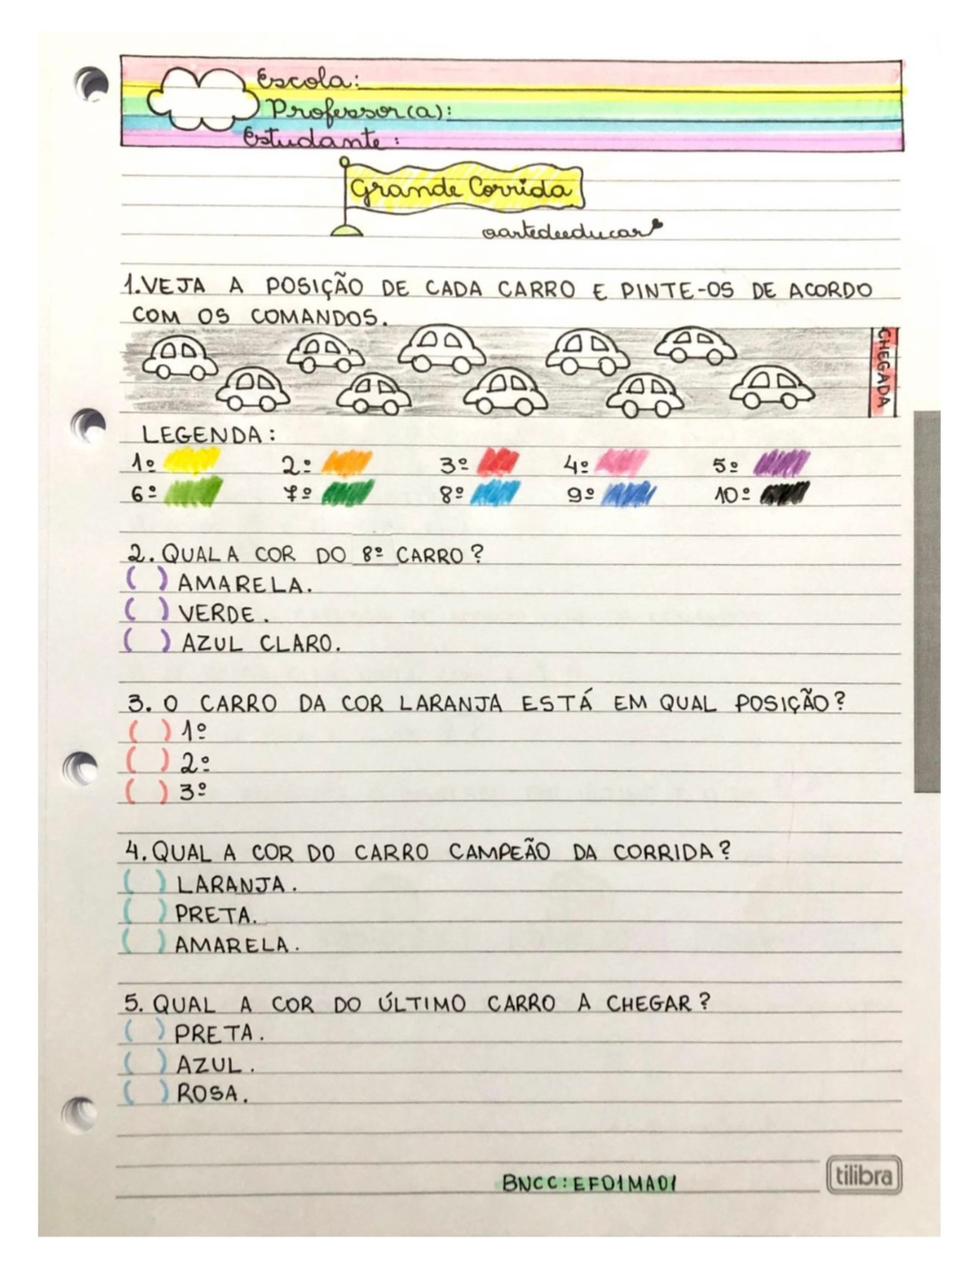 Escola:
Professor(a):
Estudante:
Grande Corrida
aartedeeducar
1.VEJA A POSIÇÃO DE CADA CARRO E PINTE-OS DE ACORDO
COM OS COMANDOS.
CHEGADA
LEGENDA:
1º 2º 3º 4º 5º
6º 7º 8º 9º 10º
2. QUAL A COR DO 8º CARRO?
( ) AMARELA.
( ) VERDE.
( ) AZUL CLARO.
3. O CARRO DA COR LARANJA ESTÁ EM QUAL POSIÇÃO?
( ) 1º
( ) 2º
( ) 3º
4. QUAL A COR DO CARRO CAMPEÃO DA CORRIDA?
( ) LARANJA.
( ) PRETA.
( ) AMARELA.
5. QUAL A COR DO ÚLTIMO CARRO A CHEGAR?
( ) PRETA.
( ) AZUL.
( ) ROSA.
tilibra
BNCC:EF01MA01